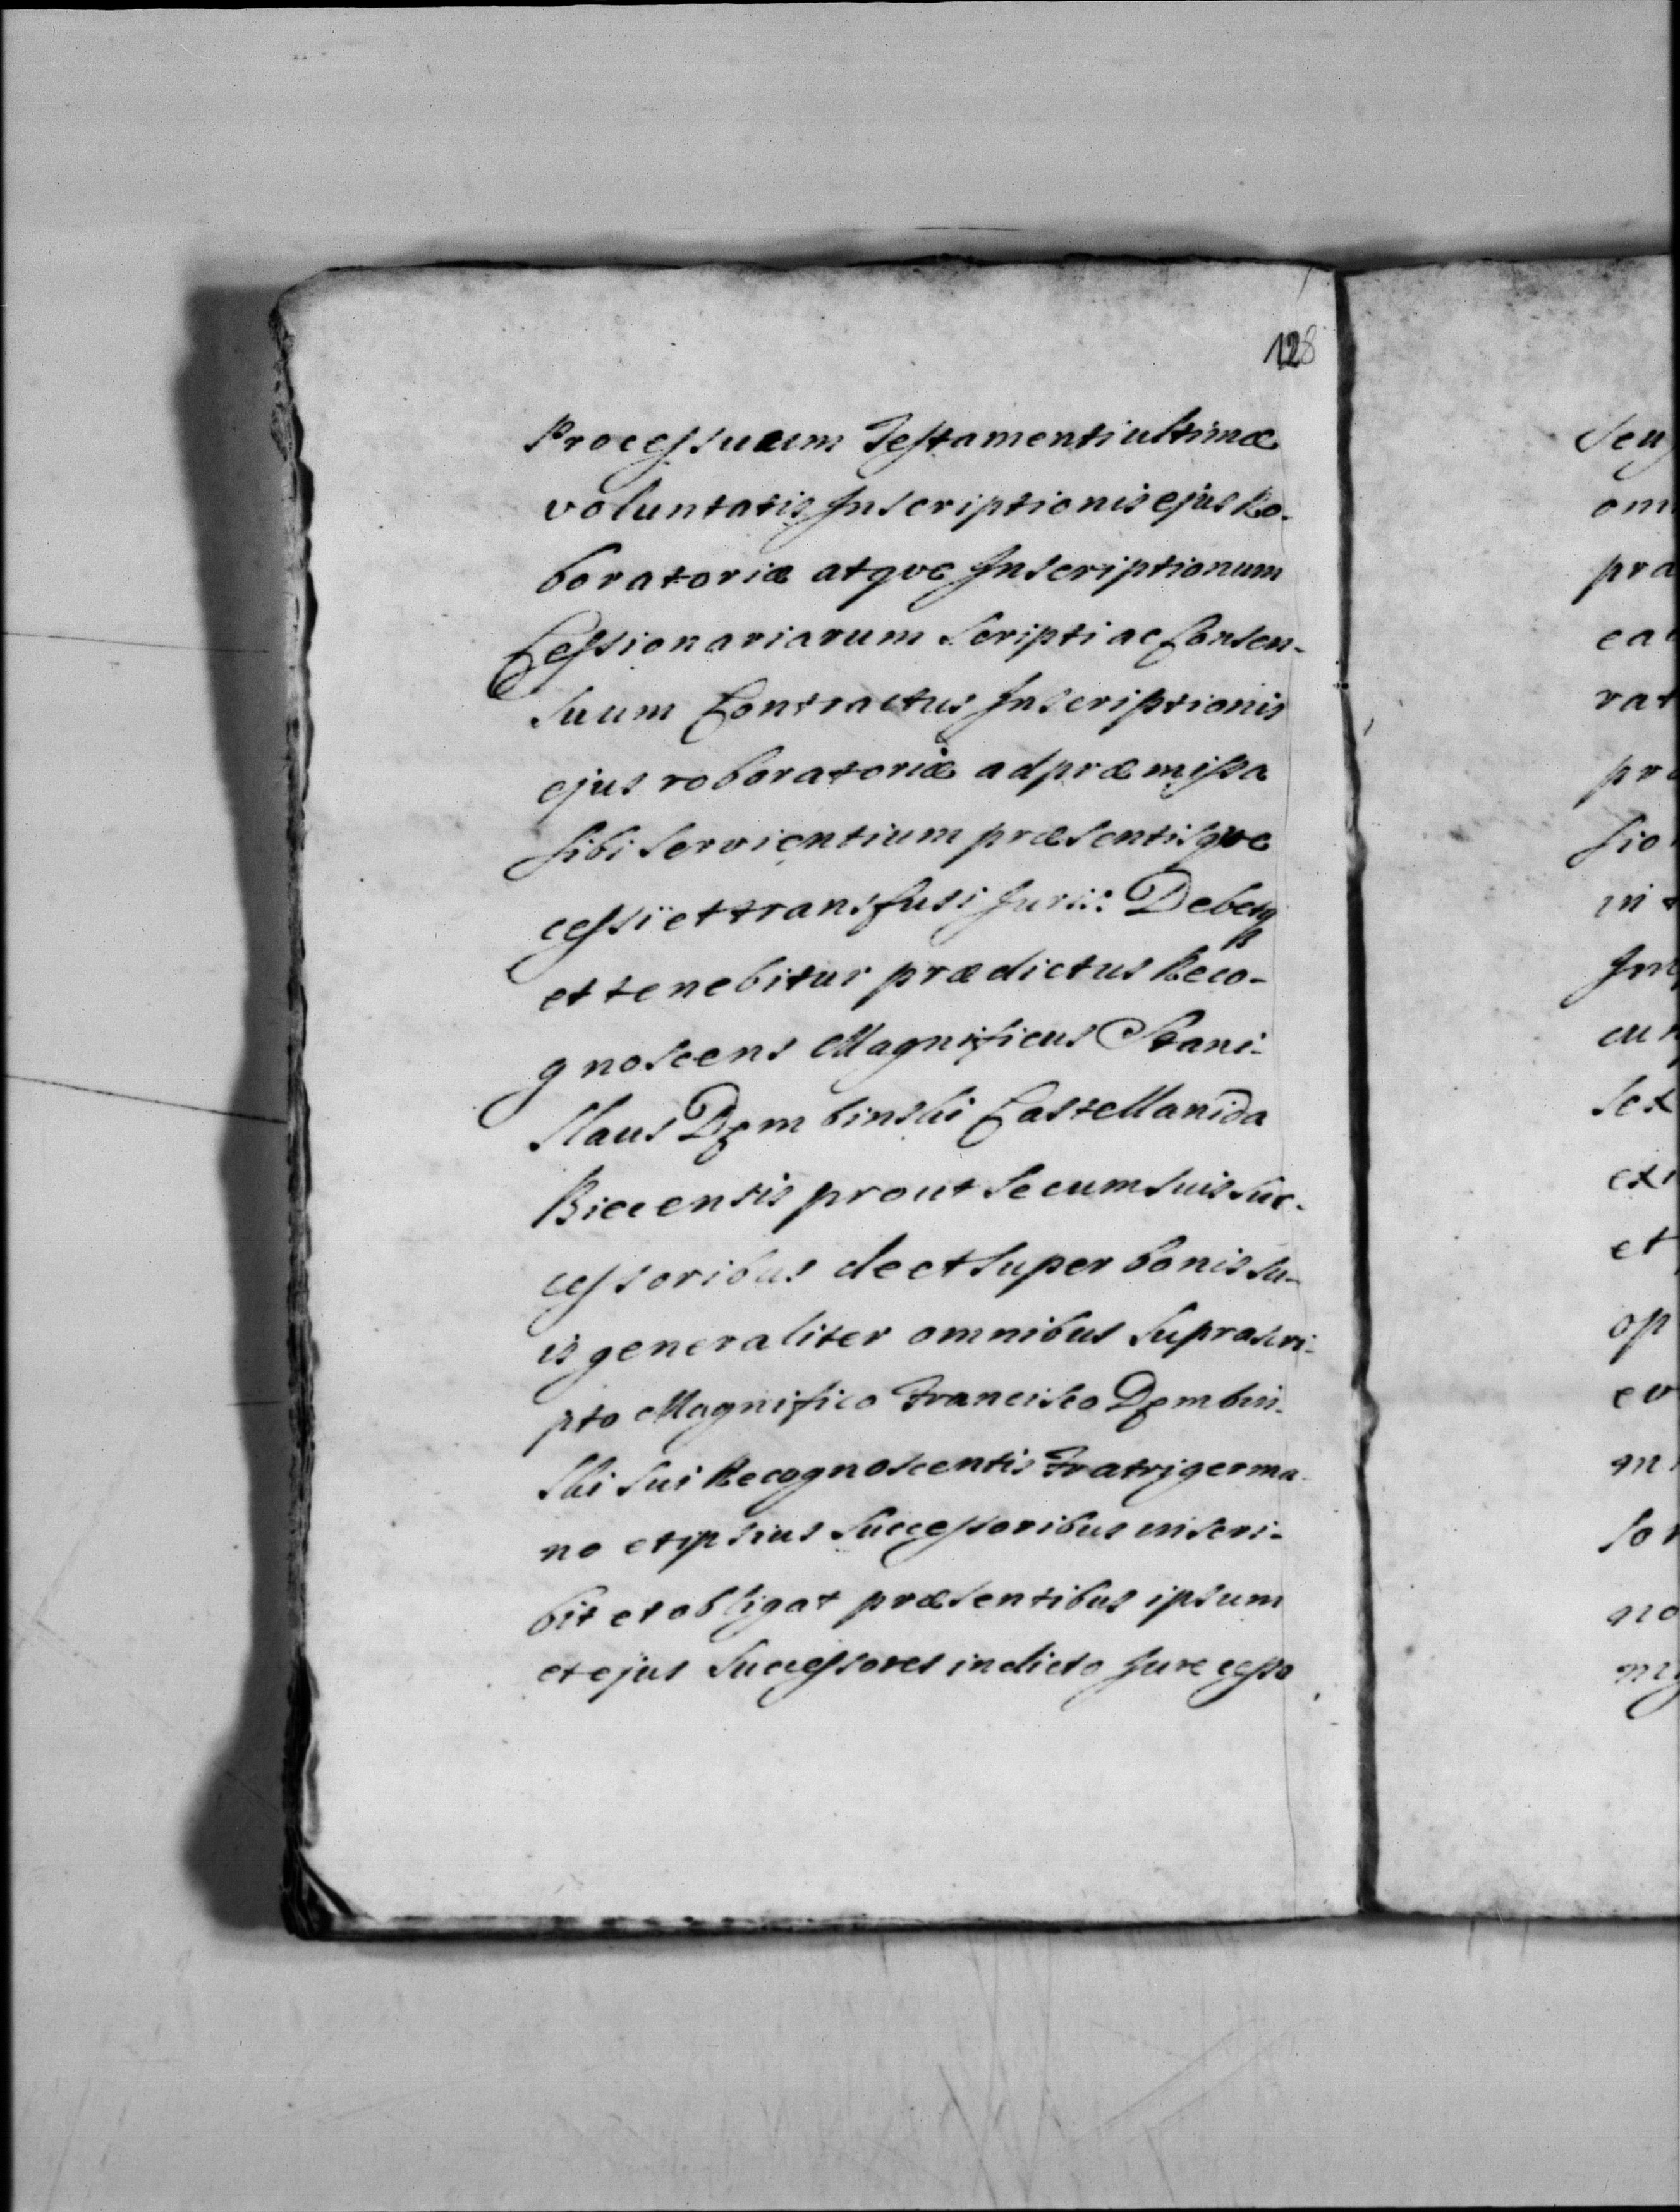 128
Processuum Testamenti ultimæ
voluntatis Inscriptionis ejus Ro-
boratoriæ atqve Inscriptionum
Cessionariarum Scripti ac Consen-
suum Contractus Inscriptionis
ejus roboratoriæ ad præmissa
sibi servientium præsentisqve
cessi et transfusi Juris: Debetq
et tenebitur prædictus Reco-
gnoscens Magnificus Stani-
slaus Dęmbinski Castellanida
Biecensis prout secum suis suc-
cessoribus de et super bonis su-
is generaliter omnibus suprascri-
pto Magnifico Francisco Dęmbin-
ski sui Recognoscentis Fratri germa-
no et ipsius Successoribus inscri-
bit et obligat præsentibus ipsum
et ejus Successores in dicto Jure cesso
seu
om
pra
ea
rat
pro
sio
in
cu
sex
ex
et
op
ev
m
so
no